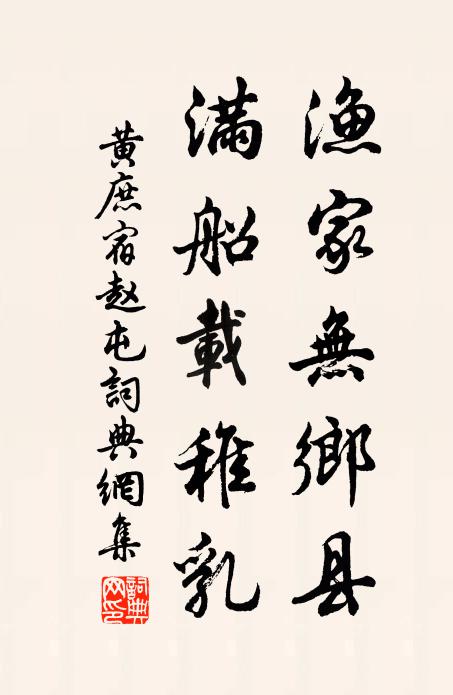 漁家無鄉县
滿船載稚乳
黃庶宿赵屯詞典網集
詞典网印